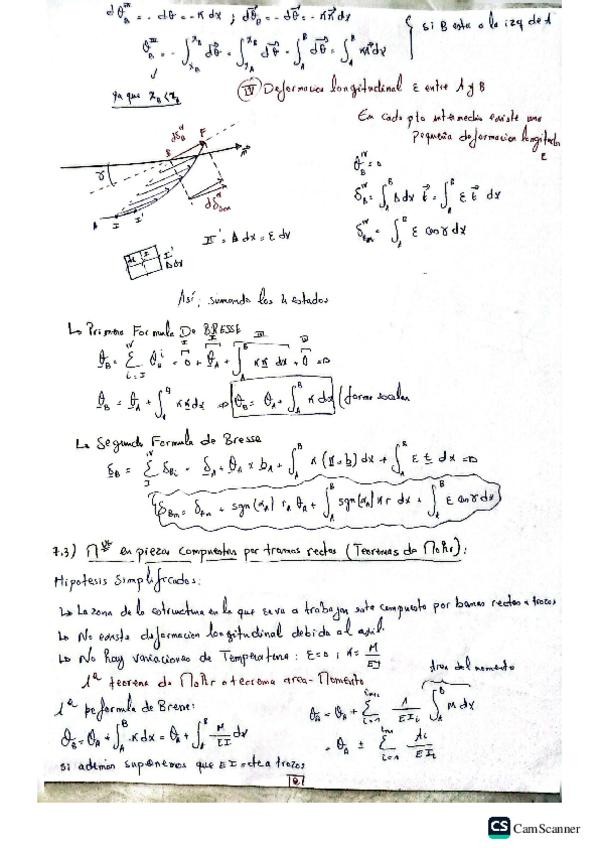 dθ_B^III = - dθ = -κ dx ; dθ_B = - dθ = -κ dx { si B está a la izq de A
θ_B^III = - ∫ dθ = ∫ dθ = ∫_A^B dθ = ∫_A^B κ dx
ya que x_B < x_A
IV Deformación longitudinal ε entre A y B
En cada pto intermedio existe una
pequeña deformacion longitudinal
ε
θ_B^IV = 0
δ_B^IV = ∫_A^B Δdx t = ∫_A^B ε t dx
δ_Bm^IV = ∫_A^B ε cos γ dx
II' = Δdx = ε dx
Así, sumando los 4 estados
↳ Primera Formula De BRESSE
θ_B = Σ_{i=I}^{IV} θ_B^i = 0 + θ_A + ∫_A^B κ n dx + 0 ⇒
θ_B = θ_A + ∫ κ n dx ⇒ θ_B = θ_A + ∫_A^B κ dx (forma escalar
↳ Segunda Formula de Bresse
δ_B = Σ_I^IV δ_Bi = δ_A + θ_A × b_A + ∫_A^B κ (n × b) dx + ∫_A^B ε t dx ⇒
δ_Bm = δ_Am + sgn(α_A) r_A θ_A + ∫_A^B sgn(α) κ r dx + ∫_A^B ε cos γ dx
7.3) en piezas compuestas por tramos rectos (Teoremas de Mohr):
Hipotesis Simplificadas:
↳ La zona de la estructura en la que se va a trabajar este compuesto por barras rectas a trozos
↳ No existe deformacion longitudinal debida al axil.
↳ No hay variaciones de Temperatura: ε = 0 ; κ = M/EI
1er teorema de Mohr o teorema area-Momento
área del momento
1ª formula de Bresse:
θ_B = θ_A + ∫_A^B κ dx = θ_A + ∫_A^B M/EI dx
θ_B = θ_A + Σ 1/EI_i ∫_A^B M dx
= θ_A ± Σ A_i/EI_i
si ademas suponemos que EI = cte a trozos
CS CamScanner